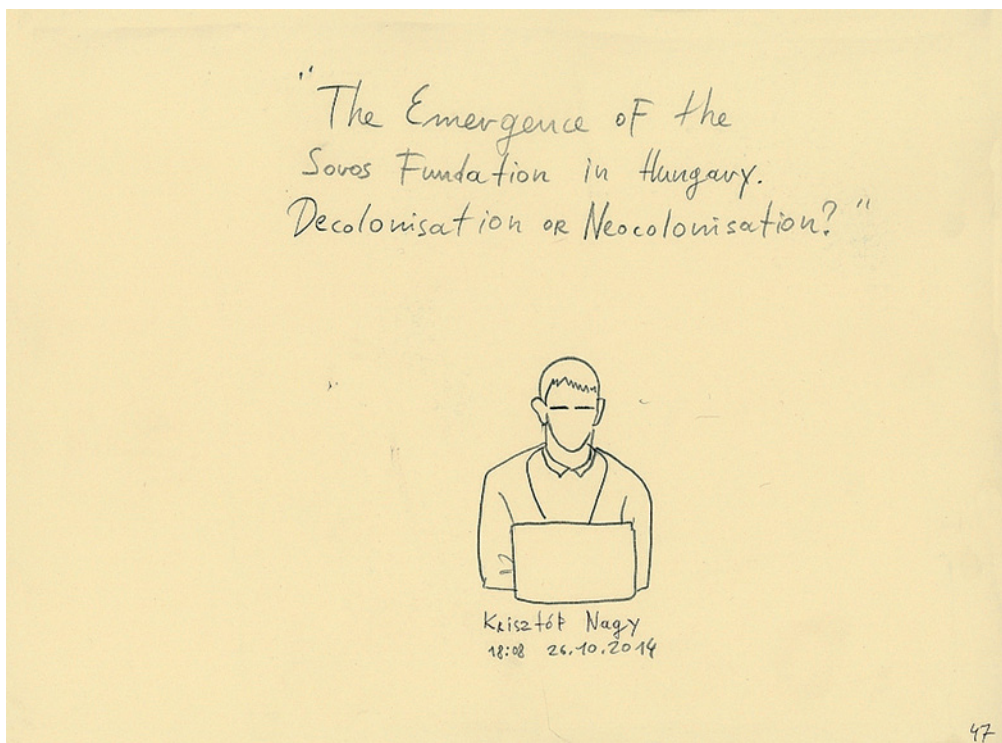 "The Emergence of the
Soros Fundation in Hungary.
Decolonisation or Neocolonisation?"
Krisztóf Nagy
18:08 26.10.2014
47